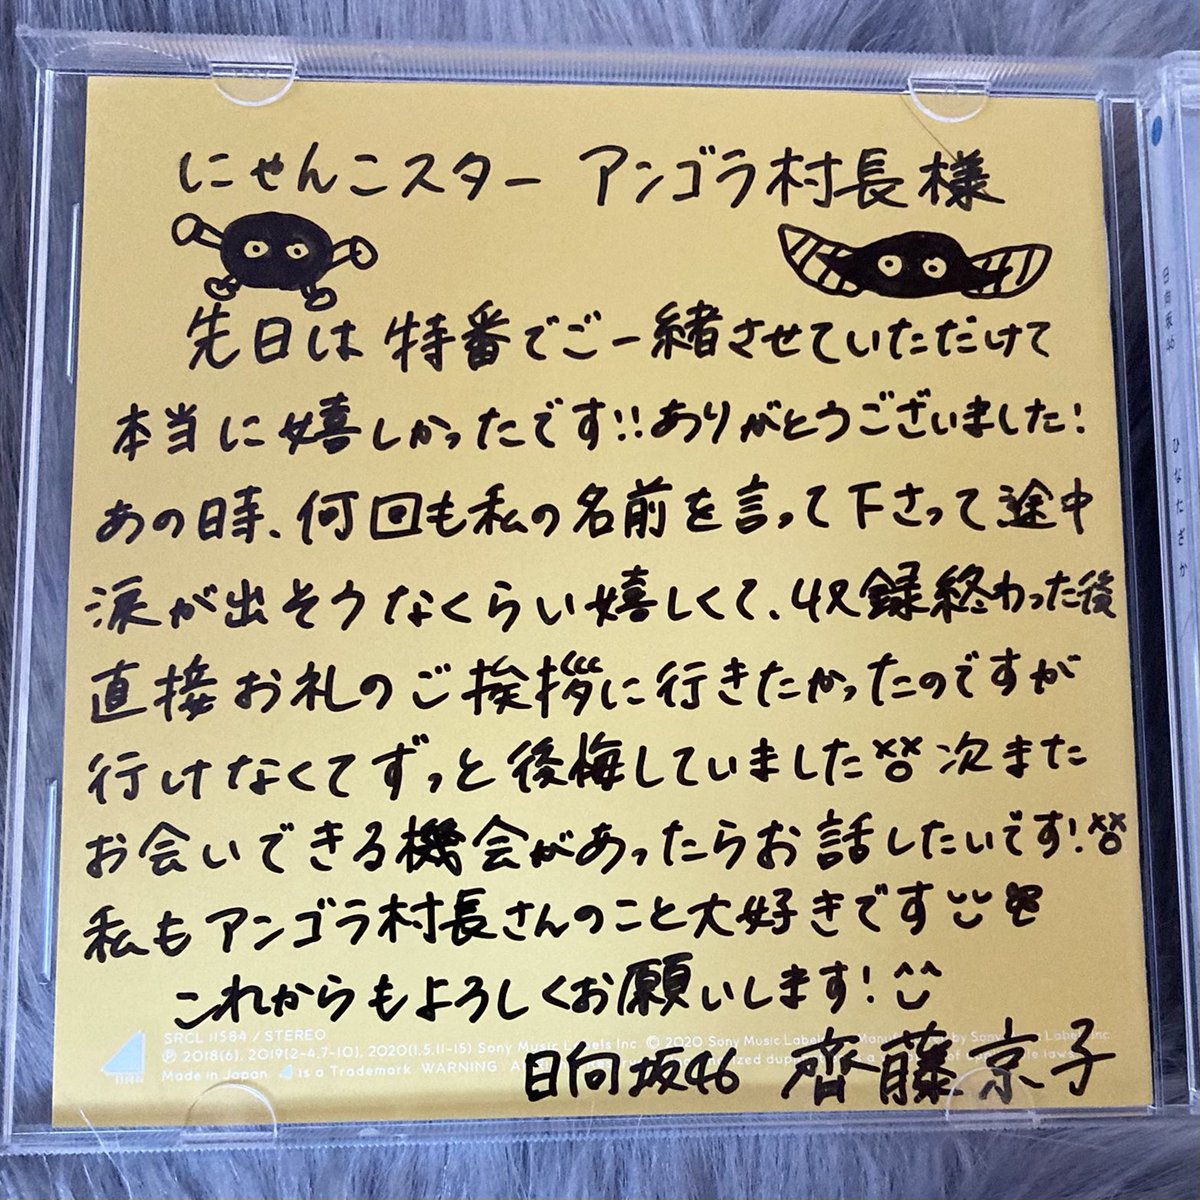 にゃんこスター アンゴラ村長様
先日は特番でご一緒させていただけて
本当に嬉しかったです!!ありがとうございました!
あの時、何回も私の名前を言って下さって途中
涙が出そうなくらい嬉しくて、収録終わった後
直接お礼のご挨拶に行きたかったのですが
行けなくてずっと後悔していました 次また
お会いできる機会があったらお話したいです!
私もアンゴラ村長さんのこと大好きです
これからもよろしくお願いします!
SRCL 11584 / STEREO
Ⓟ 2018(6), 2019(2-4,7-10), 2020(1,5,11-15) Sony Music Labels Inc. © 2020 Sony Music Labels
Made in Japan. is a Trademark. WARNING:
日向坂46 齊藤京子
日向坂46 ひなたざか